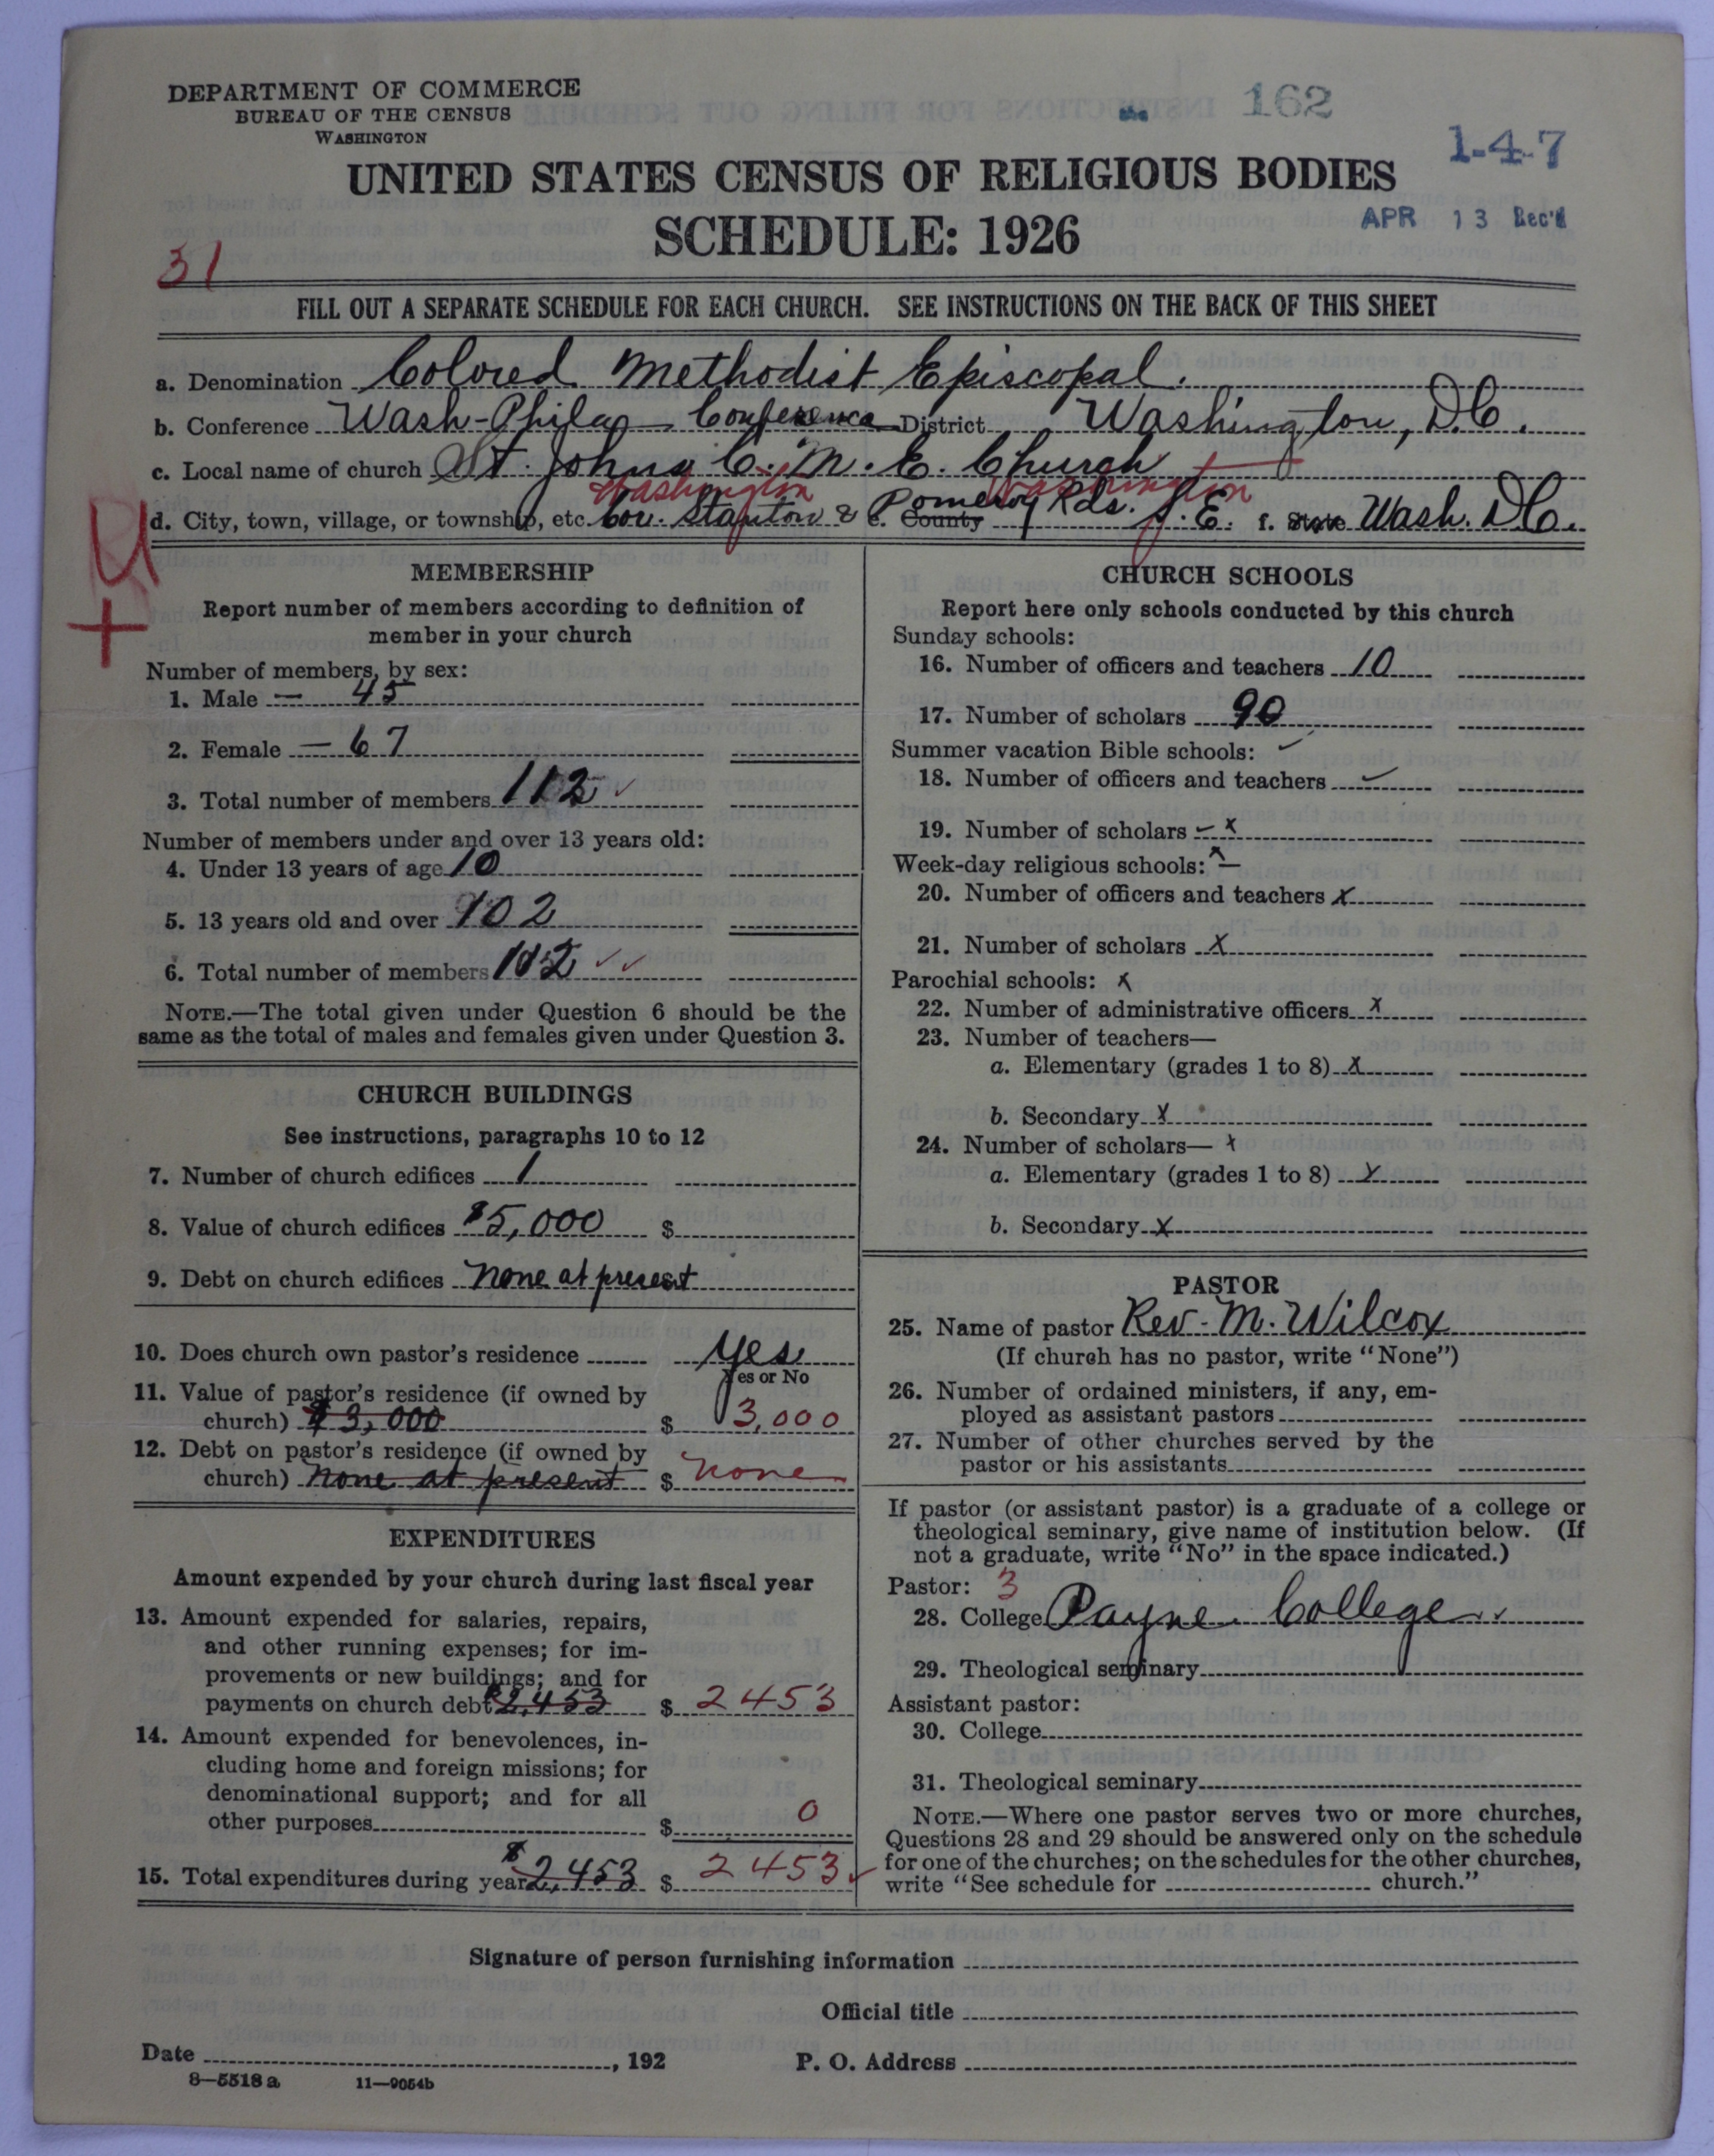 DEPARTMENT OF COMMERCE
BUREAU OF THE CENSUS
WASHINGTON
162
1-4-7
UNITED STATES CENSUS OF RELIGIOUS BODIES
SCHEDULE: 1926
APR 13 Rec'd
31
FILL OUT A SEPARATE SCHEDULE FOR EACH CHURCH. SEE INSTRUCTIONS ON THE BACK OF THIS SHEET
a. Denomination Colored Methodist Episcopal.
b. Conference Wash-Phila Conference District Washington, D.C.
c. Local name of church St. Johns C. M. E. Church
Washington Washington
d. City, town, village, or township, etc. Cor. Stanton & Pomeroy Rds. S.E. e. County f. State Wash. D.C.
U
+
MEMBERSHIP
Report number of members according to definition of
member in your church
Number of members, by sex:
1. Male — 45
2. Female — 67
3. Total number of members 112 ✓
Number of members under and over 13 years old:
4. Under 13 years of age 10
5. 13 years old and over 102
6. Total number of members 112 ✓✓
NOTE.—The total given under Question 6 should be the
same as the total of males and females given under Question 3.
CHURCH BUILDINGS
See instructions, paragraphs 10 to 12
7. Number of church edifices 1
8. Value of church edifices $5,000 $
9. Debt on church edifices none at present
10. Does church own pastor's residence yes
Yes or No
11. Value of pastor's residence (if owned by
church) $3,000 $ 3,000
12. Debt on pastor's residence (if owned by
church) none at present $ none
EXPENDITURES
Amount expended by your church during last fiscal year
13. Amount expended for salaries, repairs,
and other running expenses; for im-
provements or new buildings; and for
payments on church debt $2,453 $ 2453
14. Amount expended for benevolences, in-
cluding home and foreign missions; for
denominational support; and for all
other purposes $ 0
15. Total expenditures during year $2,453 $ 2453 ✓
CHURCH SCHOOLS
Report here only schools conducted by this church
Sunday schools:
16. Number of officers and teachers 10
17. Number of scholars 90
Summer vacation Bible schools: ✓
18. Number of officers and teachers ✓
19. Number of scholars ✓ x
Week-day religious schools: x —
20. Number of officers and teachers x
21. Number of scholars x
Parochial schools: x
22. Number of administrative officers x
23. Number of teachers—
a. Elementary (grades 1 to 8) x
b. Secondary x
24. Number of scholars— x
a. Elementary (grades 1 to 8) x
b. Secondary x
PASTOR
25. Name of pastor Rev. M. Wilcox
(If church has no pastor, write "None")
26. Number of ordained ministers, if any, em-
ployed as assistant pastors
27. Number of other churches served by the
pastor or his assistants
If pastor (or assistant pastor) is a graduate of a college or
theological seminary, give name of institution below. (If
not a graduate, write "No" in the space indicated.)
Pastor: 3
28. College Payne College
29. Theological seminary
Assistant pastor:
30. College
31. Theological seminary
NOTE.—Where one pastor serves two or more churches,
Questions 28 and 29 should be answered only on the schedule
for one of the churches; on the schedules for the other churches,
write "See schedule for church."
Signature of person furnishing information
Official title
Date , 192 P. O. Address
8—5518 a 11—9054b